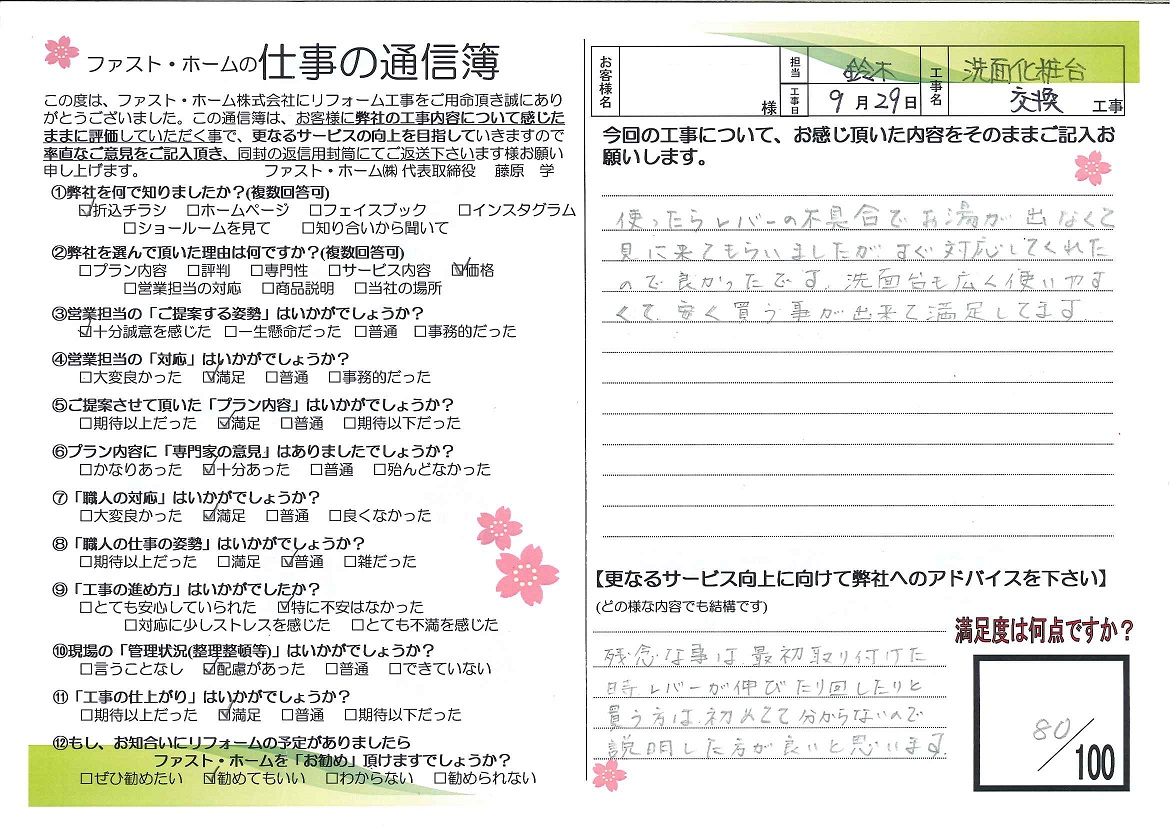 ファスト・ホームの仕事の通信簿
この度は、ファスト・ホーム株式会社にリフォーム工事をご用命頂き誠にあり
がとうございました。この通信簿は、お客様に弊社の工事内容について感じた
ままに評価していただく事で、更なるサービスの向上を目指していきますので
率直なご意見をご記入頂き、同封の返信用封筒にてご返送下さいます様お願い
申し上げます。 ファスト・ホーム㈱ 代表取締役 藤原 学
①弊社を何で知りましたか?(複数回答可)
☑折込チラシ □ホームページ □フェイスブック □インスタグラム
□ショールームを見て □知り合いから聞いて
②弊社を選んで頂いた理由は何ですか?(複数回答可)
□プラン内容 □評判 □専門性 □サービス内容 ☑価格
□営業担当の対応 □商品説明 □当社の場所
③営業担当の「ご提案する姿勢」はいかがでしょうか?
☑十分誠意を感じた □一生懸命だった □普通 □事務的だった
④営業担当の「対応」はいかがでしょうか?
□大変良かった ☑満足 □普通 □事務的だった
⑤ご提案させて頂いた「プラン内容」はいかがでしょうか?
□期待以上だった ☑満足 □普通 □期待以下だった
⑥プラン内容に「専門家の意見」はありましたでしょうか?
□かなりあった ☑十分あった □普通 □殆んどなかった
⑦「職人の対応」はいかがでしょうか?
□大変良かった ☑満足 □普通 □良くなかった
⑧「職人の仕事の姿勢」はいかがでしょうか?
□期待以上だった □満足 ☑普通 □雑だった
⑨「工事の進め方」はいかがでしたか?
□とても安心していられた ☑特に不安はなかった
□対応に少しストレスを感じた □とても不満を感じた
⑩現場の「管理状況(整理整頓等)」はいかがでしょうか?
□言うことなし ☑配慮があった □普通 □できていない
⑪「工事の仕上がり」はいかがでしょうか?
□期待以上だった ☑満足 □普通 □期待以下だった
⑫もし、お知合いにリフォームの予定がありましたら
ファスト・ホームを「お勧め」頂けますでしょうか?
□ぜひ勧めたい ☑勧めてもいい □わからない □勧められない
お客様名 様 担当 鈴木 工事日 9月29日 工事名 洗面化粧台 交換 工事
今回の工事について、お感じ頂いた内容をそのままご記入お
願いします。
使ったらレバーの不具合でお湯が出なくて
見に来てもらいましたが、すぐ対応してくれた
ので良かったです。洗面台も広く使いやす
くて、安く買う事が出来て満足してます
【更なるサービス向上に向けて弊社へのアドバイスを下さい】
(どの様な内容でも結構です)
残念な事は、最初取り付けた
時レバーが伸びたり回したりと
買う方は初めてで分からないので
説明した方が良いと思います。
満足度は何点ですか?
80/100